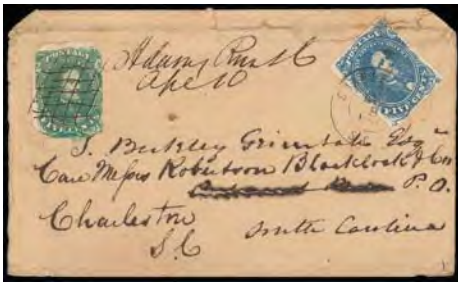 POSTAGE
Adams Run S C
Apl 10
POSTAGE
FIVE CENTS
J. Berkley Grimball Esqr
Care Messrs Robertson Blacklock & Co
P. O.
Charleston
S. C South Carolina